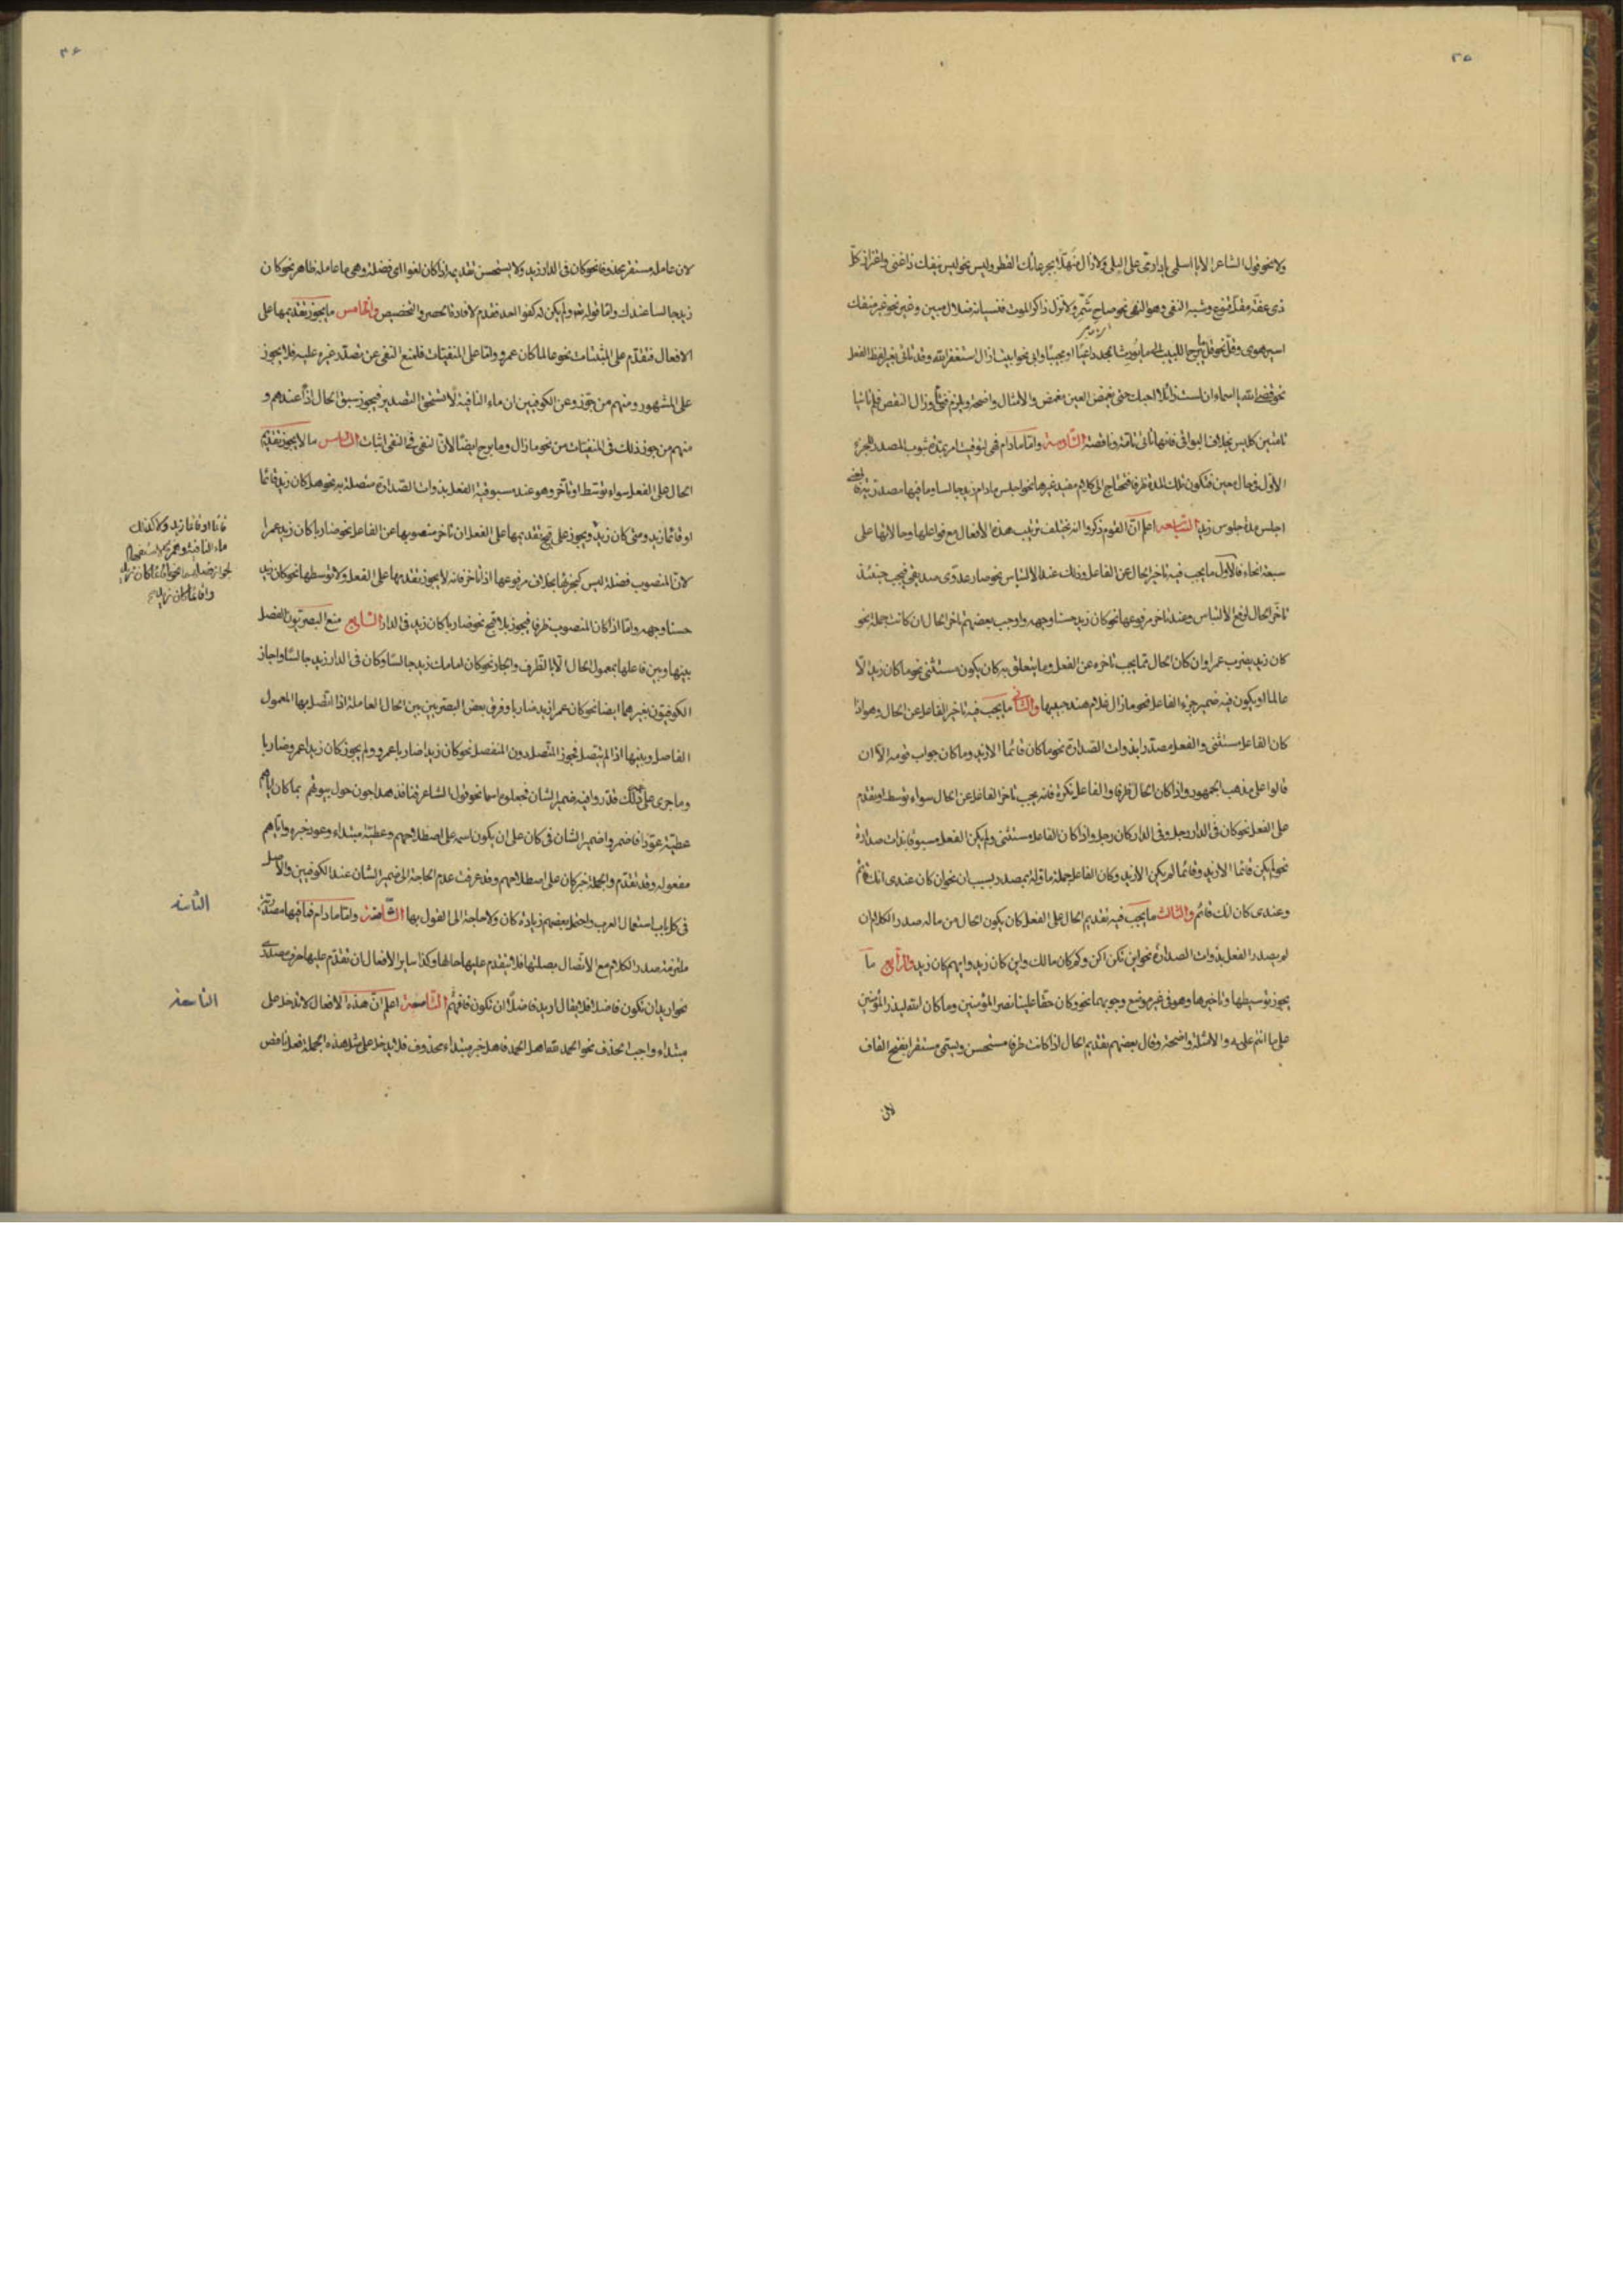 ٢٥
ولا نحو قول الشاعر الا يا اسلمي يا دارمي على البلى ولا زال منهلا بجرعائك القطر وليس نحو ليس ينفك ذا غنى واغتراز كل
ذي عفة مقل قنوع وشبه النفي وهو النهي نحو صاح شمر ولا تزل ذاكر الموت فنسيانه ضلال مبين وغير نحو غير منفك
اسير هوى وقل نحو قل يبرح اللبيب الى ما يورث المجد داعيا او مجيبا وابى نحو ابيت ازال استغفر الله وقد تاتي بغير لفظ الفعل
نحو قضى الله يا اسماء ان لست زائلا احبك حتى يغمض العين مغمض والامثال واضحة ويلزم فتئ وزال النقص فلم تاتيا
تامتين كليس بخلاف البواقي فانها تاتي تامة وناقصة السادسة واما مادام فهي لتوقيت امر بمدة ثبوت المصدر للجزء
الاول في حال معين فتكون تلك المدة ظرفا فتحتاج الى كلام مفيد غيرها نحو اجلس مادام زيد جالسا وما فيها مصدرية فالمعنى
اجلس مدة جلوس زيد السابعه اعلم ان القوم ذكروا انه يختلف ترتيب هذه الافعال مع فواعلها وحالاتها على
سبعة انحاء فالاول ما يجب فيه تاخير الحال عن الفاعل وذلك عند الالتباس نحو صار عدوي صديقي فيجب حينئذ
تاخر الحال لرفع الالتباس وعند تاخر مرفوعها نحو كان زيد حسنا وجهه واوجب بعضهم تاخر الحال ان كانت جملة نحو
كان زيد يضرب عمرا وان كان الحال مما يجب تاخره عن الفعل وما يتعلق به كان يكون مستثنى نحو ما كان زيد الا
عالما او يكون فيه ضمير جزء الفاعل نحو ما زال غلام هند حبيبها والثاني ما يجب فيه تاخير الفاعل عن الحال وهو اذا
كان الفاعل مستثنى والفعل مصدرا بذوات الصدارة نحو ما كان قائما الا زيد وما كان جواب قومه الا ان
قالوا على مذهب الجمهور واذا كان الحال ظرفا والفاعل نكرة فانه يجب تاخر الفاعل عن الحال سواء توسط او تقدم
على الفعل نحو كان في الدار رجل وفي الدار كان رجل واذا كان الفاعل مستثنى ولم يكن الفعل مسبوقا بذات صدارة
نحو لم يكن قائما الا زيد وقائما لم يكن الا زيد وكان الفاعل جملة ماولة بمصدر بسبب ان نحو ان كان عندي انك قائم
وعندي كان انك قائم والثالث ما يجب فيه تقديم الحال على الفعل كان يكون الحال من ماله صدر الكلام ان
لم يصدر الفعل بذوات الصدارة نحو اين تكن اكن وكم كان مالك واين كان زيد وايهم كان زيد والرابع ما
يجوز توسيطها وتاخيرها وهو في غير موضع وجوبهما نحو وكان حقا علينا نصر المؤمنين وما كان الله ليذر المؤمنين
على ما انتم عليه والامثلة واضحة وقال بعضهم تقديم الحال اذا كانت ظرفا مستحسن ويسمى مستقرا بفتح القاف
لان
٢٦
لان عامله مستقر محذوفا نحو كان في الدار زيد ولا يستحسن تقديمه اذا كان لغوا اي فضلة وهي ما عامله ظاهر نحو كان
زيد جالسا عندك واما قوله تعو ولم يكن له كفوا احد فتقدم لافادة الحصر والتخصيص والخامس ما يجوز تقديمها على
الافعال فتقدم على المثبتات نحو عالما كان عمرو واما على المنفيات فلمنع النفي عن تصدر غيره عليه فلا يجوز
على المشهور ومنهم من جوز وعن الكوفيين ان ماء النافية لا تستحق التصدير فيجوز سبق الحال اذا عندهم و
منهم من جوز ذلك في المنفيات من نحو ما زال وما برح ايضا لان النفي في النفي اثبات السادس ما لا يجوز تقديم
الحال على الفعل سواء توسط او تاخر وهو عند سبوقية الفعل بذوات الصدارة متصلة به نحو هل كان زيد قائما
او قائما زيد ومتى كان زيد ويجوز على قبح تقديمها على الفعل ان تاخر منصوبها عن الفاعل نحو ضاربا كان زيد عمرا
لان المنصوب فضلة ليس كجزئها بخلاف مرفوعها اذا تاخر فانه لا يجوز تقديمها على الفعل ولا توسطها نحو كان زيد
حسنا وجهه واما اذا كان المنصوب ظرفا فيجوز بلا قبح نحو ضاربا كان زيد في الدار السابع منع البصريون الفصل
بينها وبين فاعلها بمعمول الحال الا بالظرف والجار نحو كان امامك زيد جالسا وكان في الدار زيد جالسا واجاز
الكوفيون بغيرهما ايضا نحو كان عمرا زيد ضاربا وفرق بعض البصريين بين الحال العاملة اذا اتصل بها المعمول
الفاصل وبينها اذا لم يتصل فجوز المتصل دون المنفصل نحو كان زيدا ضاربا عمرو ولم يجوز كان زيدا عمرو ضاربا
وما جرى على ذلك قدروا فيه ضمير الشان فجعلوه اسما نحو قول الشاعر قنافذ هداجون حول بيوتهم بما كان اياهم
عطية عودا فاضمروا ضمير الشان في كان على ان يكون اسمه على اصطلاحهم وعطية مبتداء وعود خبره واياهم
مفعوله وقد تقدم والجملة خبر كان على اصطلاحهم وقد عرفت عدم الحاجة الى ضمير الشان عند الكوفيين والاصل
في كل باب استعمال العرب واحتمل بعضهم زيادة كان ولا حاجة الى القول بها الثامنة واما مادام فما فيها مصدرية
ملتزمة صدر الكلام مع الاتصال بصلتها فلا يتقدم عليها حالها وكذا ساير الافعال ان تقدم عليها حرف مصدري
نحو اريد ان تكون فاضلا فلا يقال اريد فاضلا ان تكون فافهم التاسعة اعلم ان هذه الافعال لا تدخل على
مبتداء واجب الحذف نحو الحمد لله اهل الحمد فاهل خبر مبتداء محذوف فلا يدخل على مثل هذه الجملة فعل ناقص
قائما او قائما زيد ولا كذلك
ماء النافية وهمزة الاستفهام
الثامنة
التاسعة